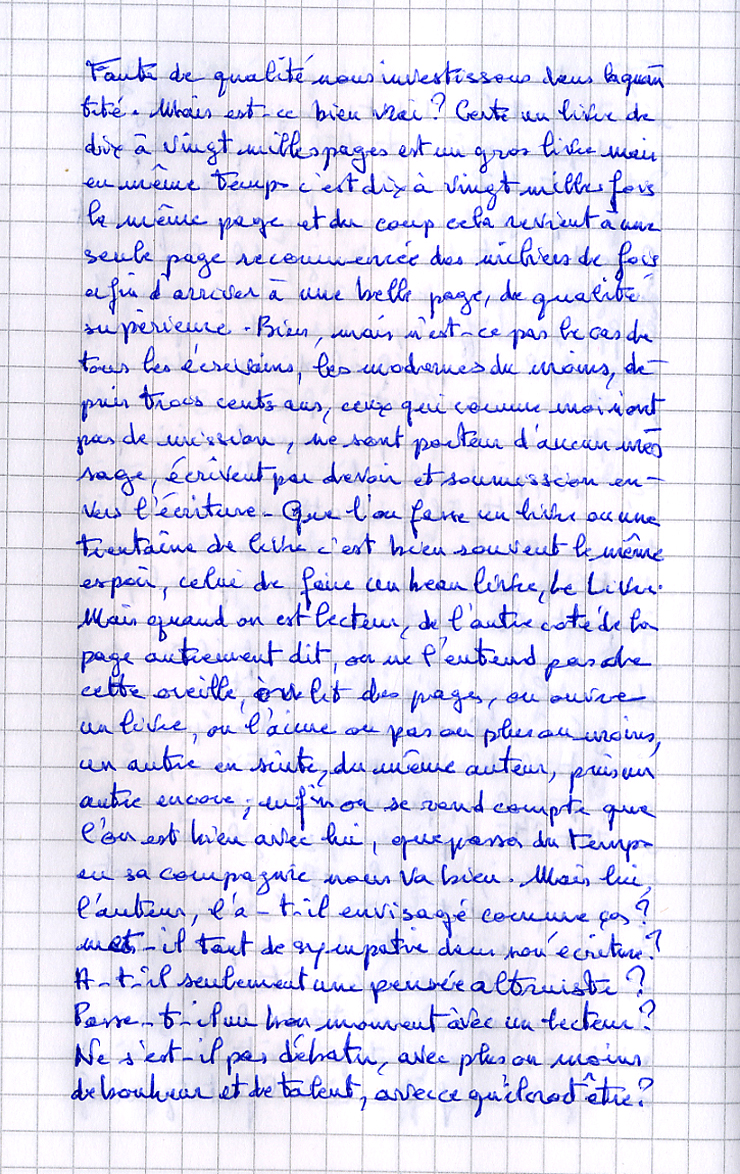 Faute de qualité nous investissons dans la quan
tité. Mais est-ce bien vrai? Certe un livre de
dix à vingt milles pages est un gros livre mais
en même temps c'est dix à vingt milles fois
la même page et du coup cela revient à une
seule page recommencée des milliers de fois
afin d'arriver à une belle page, de qualité
supérieure. Bien, mais n'est-ce pas le cas de
tous les écrivains, les modernes du moins, de-
puis trois cents ans, ceux qui comme moi n'ont
pas de mission, ne sont porteur d'aucun mes
sage, écrivent par devoir et soumission en-
vers l'écriture. Que l'on fasse un livre ou une
trentaine de livre c'est bien souvent le même
espoir, celui de faire un beau livre, Le Livre.
Mais quand on est lecteur, de l'autre coté de la
page autrement dit, on ne l'entend pas de
cette oreille, on lit des pages, on ouvre
un livre, on l'aime ou pas ou plus ou moins,
un autre en suite, du même auteur, puis un
autre encore; enfin on se rend compte que
l'on est bien avec lui, que passer du temps
en sa compagnie nous va bien. Mais lui,
l'auteur, l'a-t-il envisagé comme ça?
met-il tant de sympatie dans son écriture?
A-t-il seulement une pensée altruiste?
Passe-t-il un bon moment avec un lecteur?
Ne s'est-il pas débatu, avec plus ou moins
de bonheur et de talent, avec ce qu'il croit être?